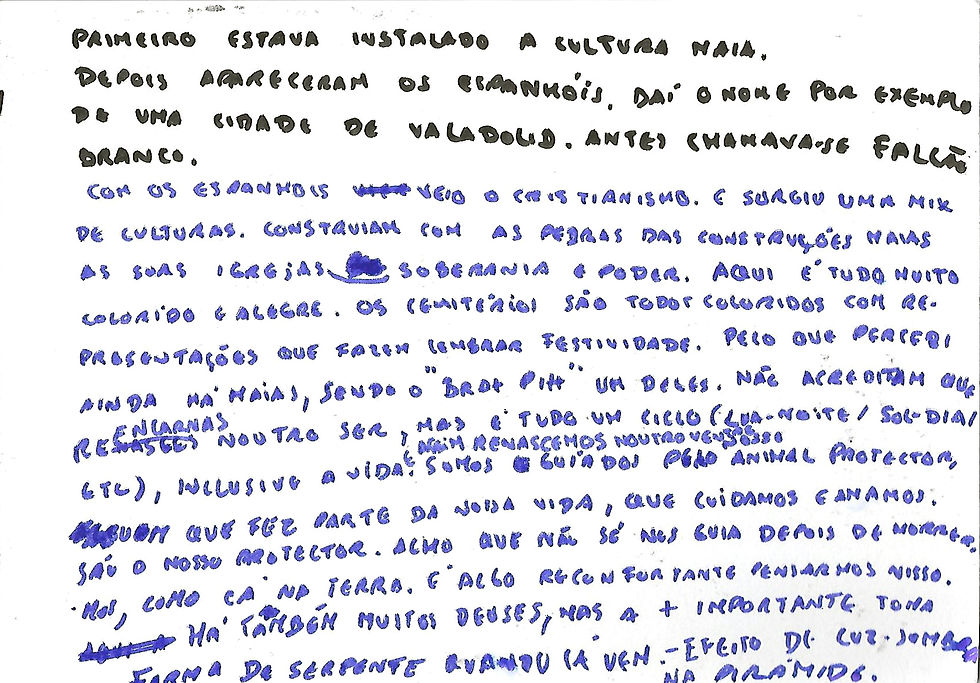 PRIMEIRO ESTAVA INSTALADO A CULTURA MAIA.
DEPOIS APARECERAM OS ESPANHÓIS, DAÍ O NOME POR EXEMPLO
DE UMA CIDADE DE VALADOLID. ANTES CHAMAVA-SE FALCÃO
BRANCO.
COM OS ESPANHOIS VEIO O CRISTIANISMO. E SURGIU UMA MIX
DE CULTURAS. CONSTRUIAM COM AS PEDRAS DAS CONSTRUÇÕES MAIAS
AS SUAS IGREJAS SOBERANIA E PODER. AQUI É TUDO MUITO
COLORIDO E ALEGRE. OS CEMITÉRIOS SÃO TODOS COLORIDOS COM RE-
PRESENTAÇÕES QUE FAZEM LEMBRAR FESTIVIDADE. PELO QUE PERCEBI
AINDA HÁ MAIAS, SENDO O "BRAT PITT" UM DELES. NÃO ACREDITAM QUE
ENCARNAS
RENASCES NOUTRO SER, MAS É TUDO UM CICLO (LUA-NOITE / SOL-DIA/
E ASSIM RENASCEMOS NOUTRO
ETC), INCLUSIVE A VIDA. SOMOS GUIADOS PELO ANIMAL PROTECTOR,
QUE FEZ PARTE DA NOSSA VIDA, QUE CUIDAMOS E AMAMOS.
SÃO O NOSSO PROTECTOR. ACHO QUE NÃO SÉ NOS GUIA DEPOIS DE MORRER-
MOS, COMO CÁ NA TERRA. É ALGO RECONFORTANTE PENSARMOS NISSO.
AQUI HÁ TAMBÉM MUITOS DEUSES, MAS A + IMPORTANTE TOMA
FORMA DE SERPENTE QUANDO CÁ VEM. - EFEITO DE LUZ-SOMBRA
NA PIRÂMIDE.